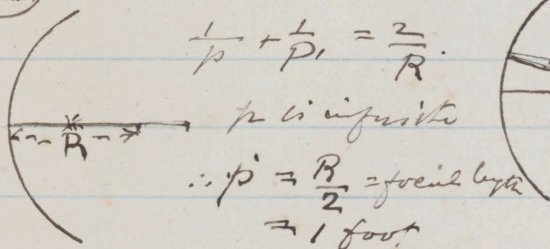 1/p + 1/p, = 2/R.
R
p is infinite
∴ p = R/2 = focal length
= 1 foot